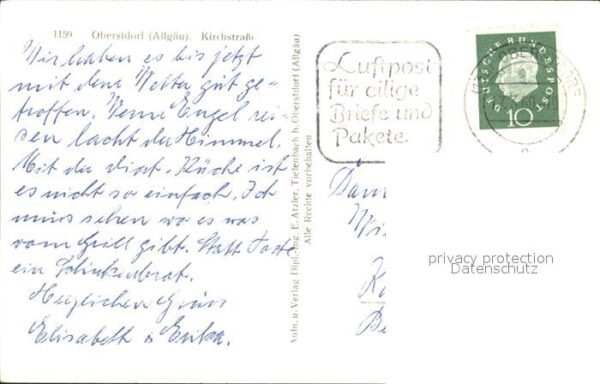 1159 Oberstdorf (Allgäu). Kirchstraße
Wir haben es bis jetzt
mit dem Wetter gut ge-
troffen. Wenn Engel rei-
sen lacht der Himmel.
Mit der diät. Küche ist
es nicht so einfach. Ich
muss sehen wo es was
vom Grill gibt. Statt Torte
ein Schinkenbrot.
Herzlichen Gruss
Elisabeth u. Erika
Aufn. u. Verlag Dipl.-Ing. E. Atzler, Tiefenbach b. Oberstdorf (Allgäu)
Alle Rechte vorbehalten
Luftpost
für eilige
Briefe und
Pakete
DEUTSCHE BUNDESPOST
10
privacy protection
Datenschutz